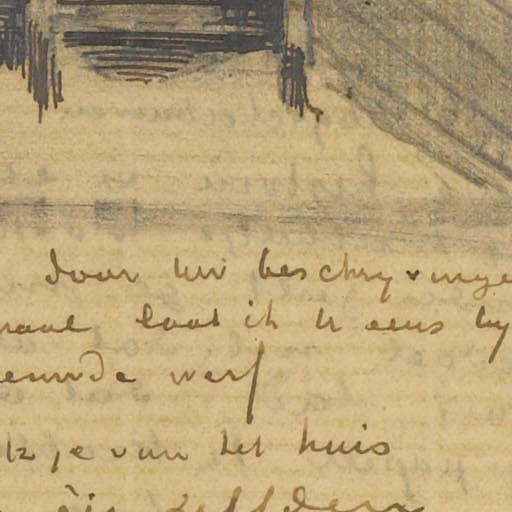 door uw beschryvinge
maal laat ik U eens by
euwde werf
k je van het huis
zelfden